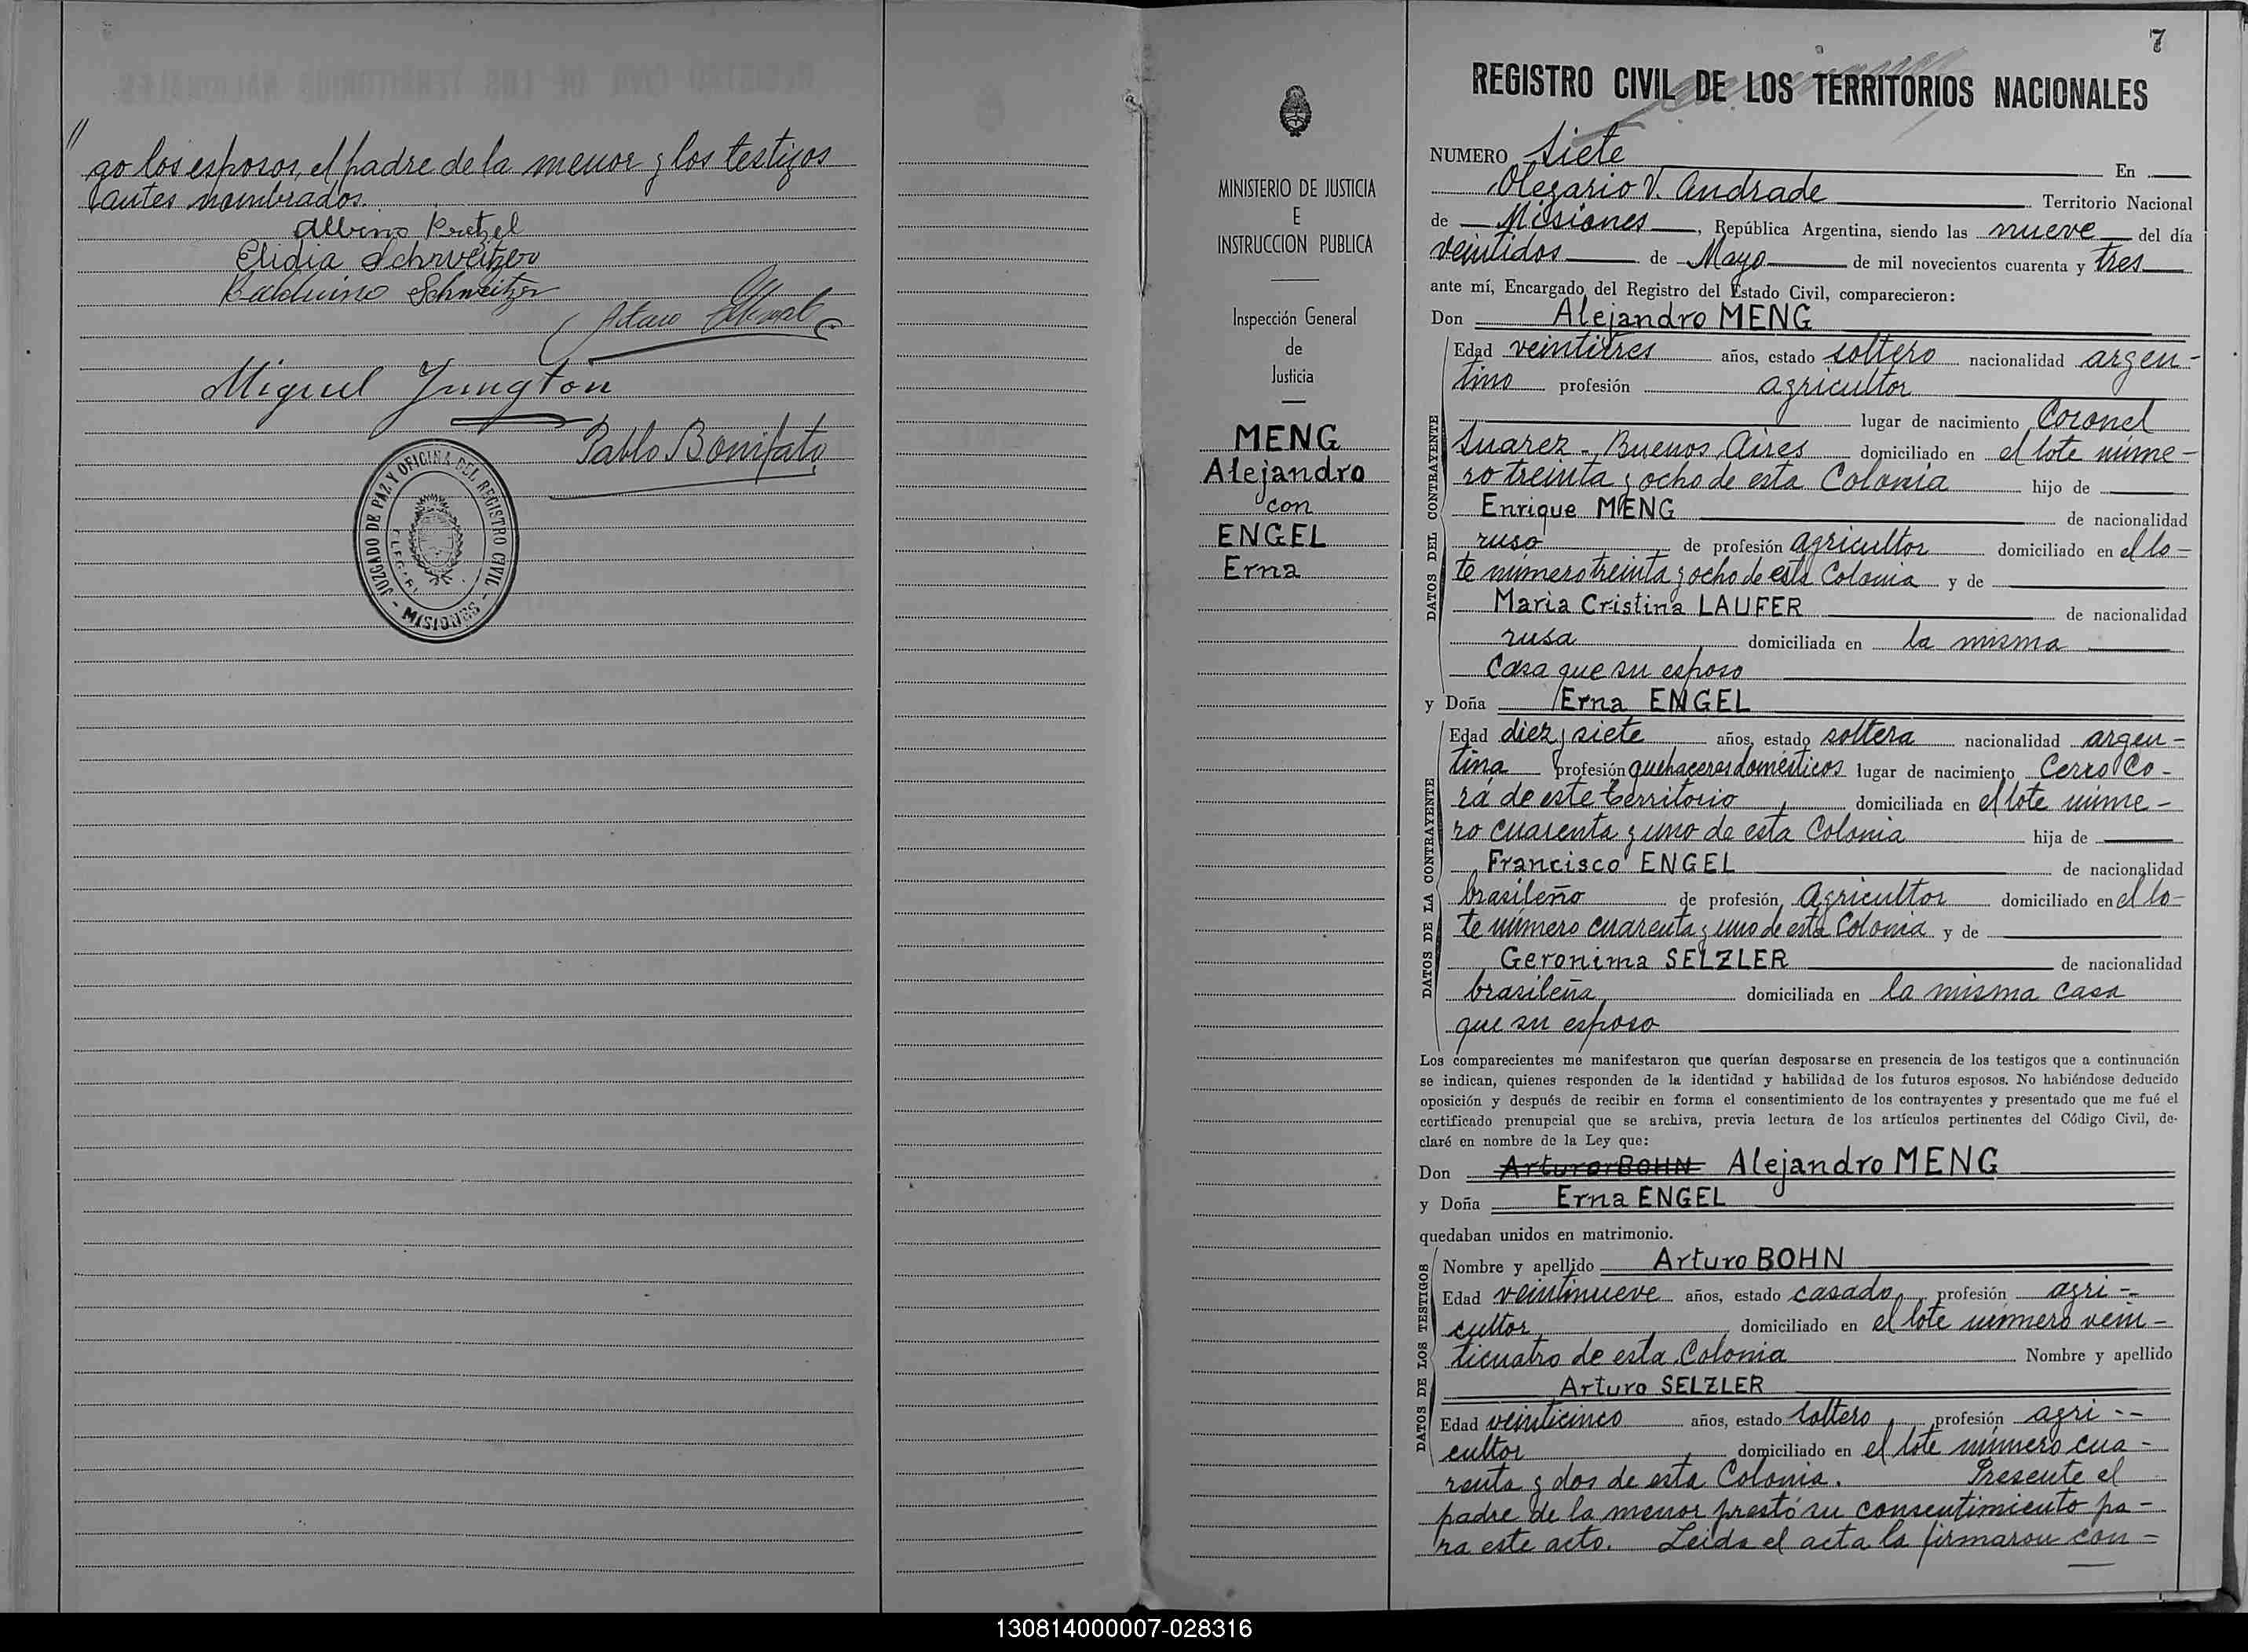 go los esposos, el padre de la menor y los testigos
antes nombrados.
Albino Pretzel
Elidia Schweitzer
Balduino Schweitzer
Arturo
Miguel Jungton
Pablo Bonifato
JUZGADO DE PAZ Y OFICINA DEL REGISTRO CIVIL
- MISIONES -
MINISTERIO DE JUSTICIA
E
INSTRUCCION PUBLICA
Inspección General
de
Justicia
MENG
Alejandro
con
ENGEL
Erna
7
REGISTRO CIVIL DE LOS TERRITORIOS NACIONALES
NUMERO Siete En
Olegario V. Andrade Territorio Nacional
de Misiones, República Argentina, siendo las nueve del día
veintidos de Mayo de mil novecientos cuarenta y tres
ante mí, Encargado del Registro del Estado Civil, comparecieron:
Don Alejandro MENG
DATOS DEL CONTRAYENTE
Edad veintitres años, estado soltero nacionalidad argen-
tino profesión agricultor
lugar de nacimiento Coronel
Suarez - Buenos Aires domiciliado en el lote núme-
ro treinta y ocho de esta Colonia hijo de
Enrique MENG de nacionalidad
ruso de profesión agricultor domiciliado en el lo-
te número treinta y ocho de esta Colonia y de
Maria Cristina LAUFER de nacionalidad
rusa domiciliada en la misma
casa que su esposo
y Doña Erna ENGEL
DATOS DE LA CONTRAYENTE
Edad diez y siete años, estado soltera nacionalidad argen-
tina profesión quehaceres domésticos lugar de nacimiento Cerro Co-
rá de este territorio, domiciliada en el lote núme-
ro cuarenta y uno de esta Colonia hija de
Francisco ENGEL de nacionalidad
brasileño de profesión Agricultor domiciliado en el lo-
te número cuarenta y uno de esta Colonia y de
Geronima SELZLER de nacionalidad
brasileña domiciliada en la misma casa
que su esposo
Los comparecientes me manifestaron que querían desposarse en presencia de los testigos que a continuación
se indican, quienes responden de la identidad y habilidad de los futuros esposos. No habiéndose deducido
oposición y después de recibir en forma el consentimiento de los contrayentes y presentado que me fué el
certificado prenupcial que se archiva, previa lectura de los artículos pertinentes del Código Civil, de-
claré en nombre de la Ley que:
Don Arturo BOHN Alejandro MENG
y Doña Erna ENGEL
quedaban unidos en matrimonio.
DATOS DE LOS TESTIGOS
Nombre y apellido Arturo BOHN
Edad veintinueve años, estado casado, profesión agri-
cultor domiciliado en el lote número vein-
ticuatro de esta Colonia Nombre y apellido
Arturo SELZLER
Edad veinticinco años, estado soltero, profesión agri--
cultor domiciliado en el lote número cua-
renta y dos de esta Colonia. Presente el
padre de la menor prestó su consentimiento pa-
ra este acto. Leida el acta la firmaron con-
130814000007-028316